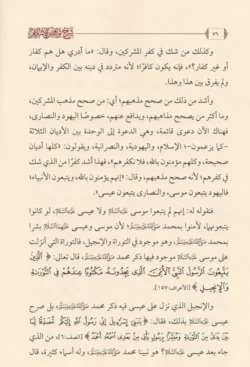 ٧٦
وكذلك من شك في كفر المشركين، وقال: «ما أدري هل هم كفار
أو غير كفار؟»، فإنه يكون كافرًا؛ لأنه متردد في دينه بين الكفر والإيمان،
ولم يفرق بين هذا وهذا.
وأشد من ذلك من صحح مذهبهم؛ أي: من صحح مذهب المشركين،
أشد ممن يصحح مذاهبهم، ويدافع عنهم، خصوصًا اليهود والنصارى،
فهناك الآن دعوى قائمة، وهي الدعوة إلى الوحدة بين الأديان الثلاثة
-كما يزعمون-: الإسلام، واليهودية، والنصرانية، ويقولون: «كلها أديان
صحيحة، وكلهم مؤمنون بالله، فلا نكفرهم»، فهذا أشد كفرًا من الذي شك
في كفرهم؛ لأنه صحح مذهبهم، وقال: «إنهم يؤمنون بالله، ويتبعون الأنبياء؛
فاليهود يتبعون موسى، والنصارى يتبعون عيسى».
فنقول له: إنهم لم يتبعوا موسى ولا عيسى، لو كانوا
يتبعونهما، لآمنوا بمحمد ﷺ؛ لأن موسى وعيسى بشرا
بمحمد ﷺ، وهو موجود في التوراة والإنجيل، فالتوراة التي أنزلت
على موسى موجود فيها ذكر محمد ﷺ، قال تعالى: ﴿الَّذِينَ
يَتَّبِعُونَ الرَّسُولَ النَّبِيَّ الْأُمِّيَّ الَّذِي يَجِدُونَهُ مَكْتُوبًا عِندَهُمْ فِي التَّوْرَاةِ
وَالْإِنجِيلِ﴾ [الأعراف: ١٥٧].
والإنجيل الذي نزل على عيسى فيه ذكر محمد ﷺ، بل صرح
عيسى بذلك، فقال: ﴿يَا بَنِي إِسْرَائِيلَ إِنِّي رَسُولُ اللَّهِ إِلَيْكُم مُّصَدِّقًا لِّمَا
بَيْنَ يَدَيَّ مِنَ التَّوْرَاةِ وَمُبَشِّرًا بِرَسُولٍ يَأْتِي مِن بَعْدِي اسْمُهُ أَحْمَدُ﴾ [الصف: ٦]، من الذي
جاء بعد عيسى؟ هو نبينا محمد ﷺ، وله أسماء كثيرة، قال